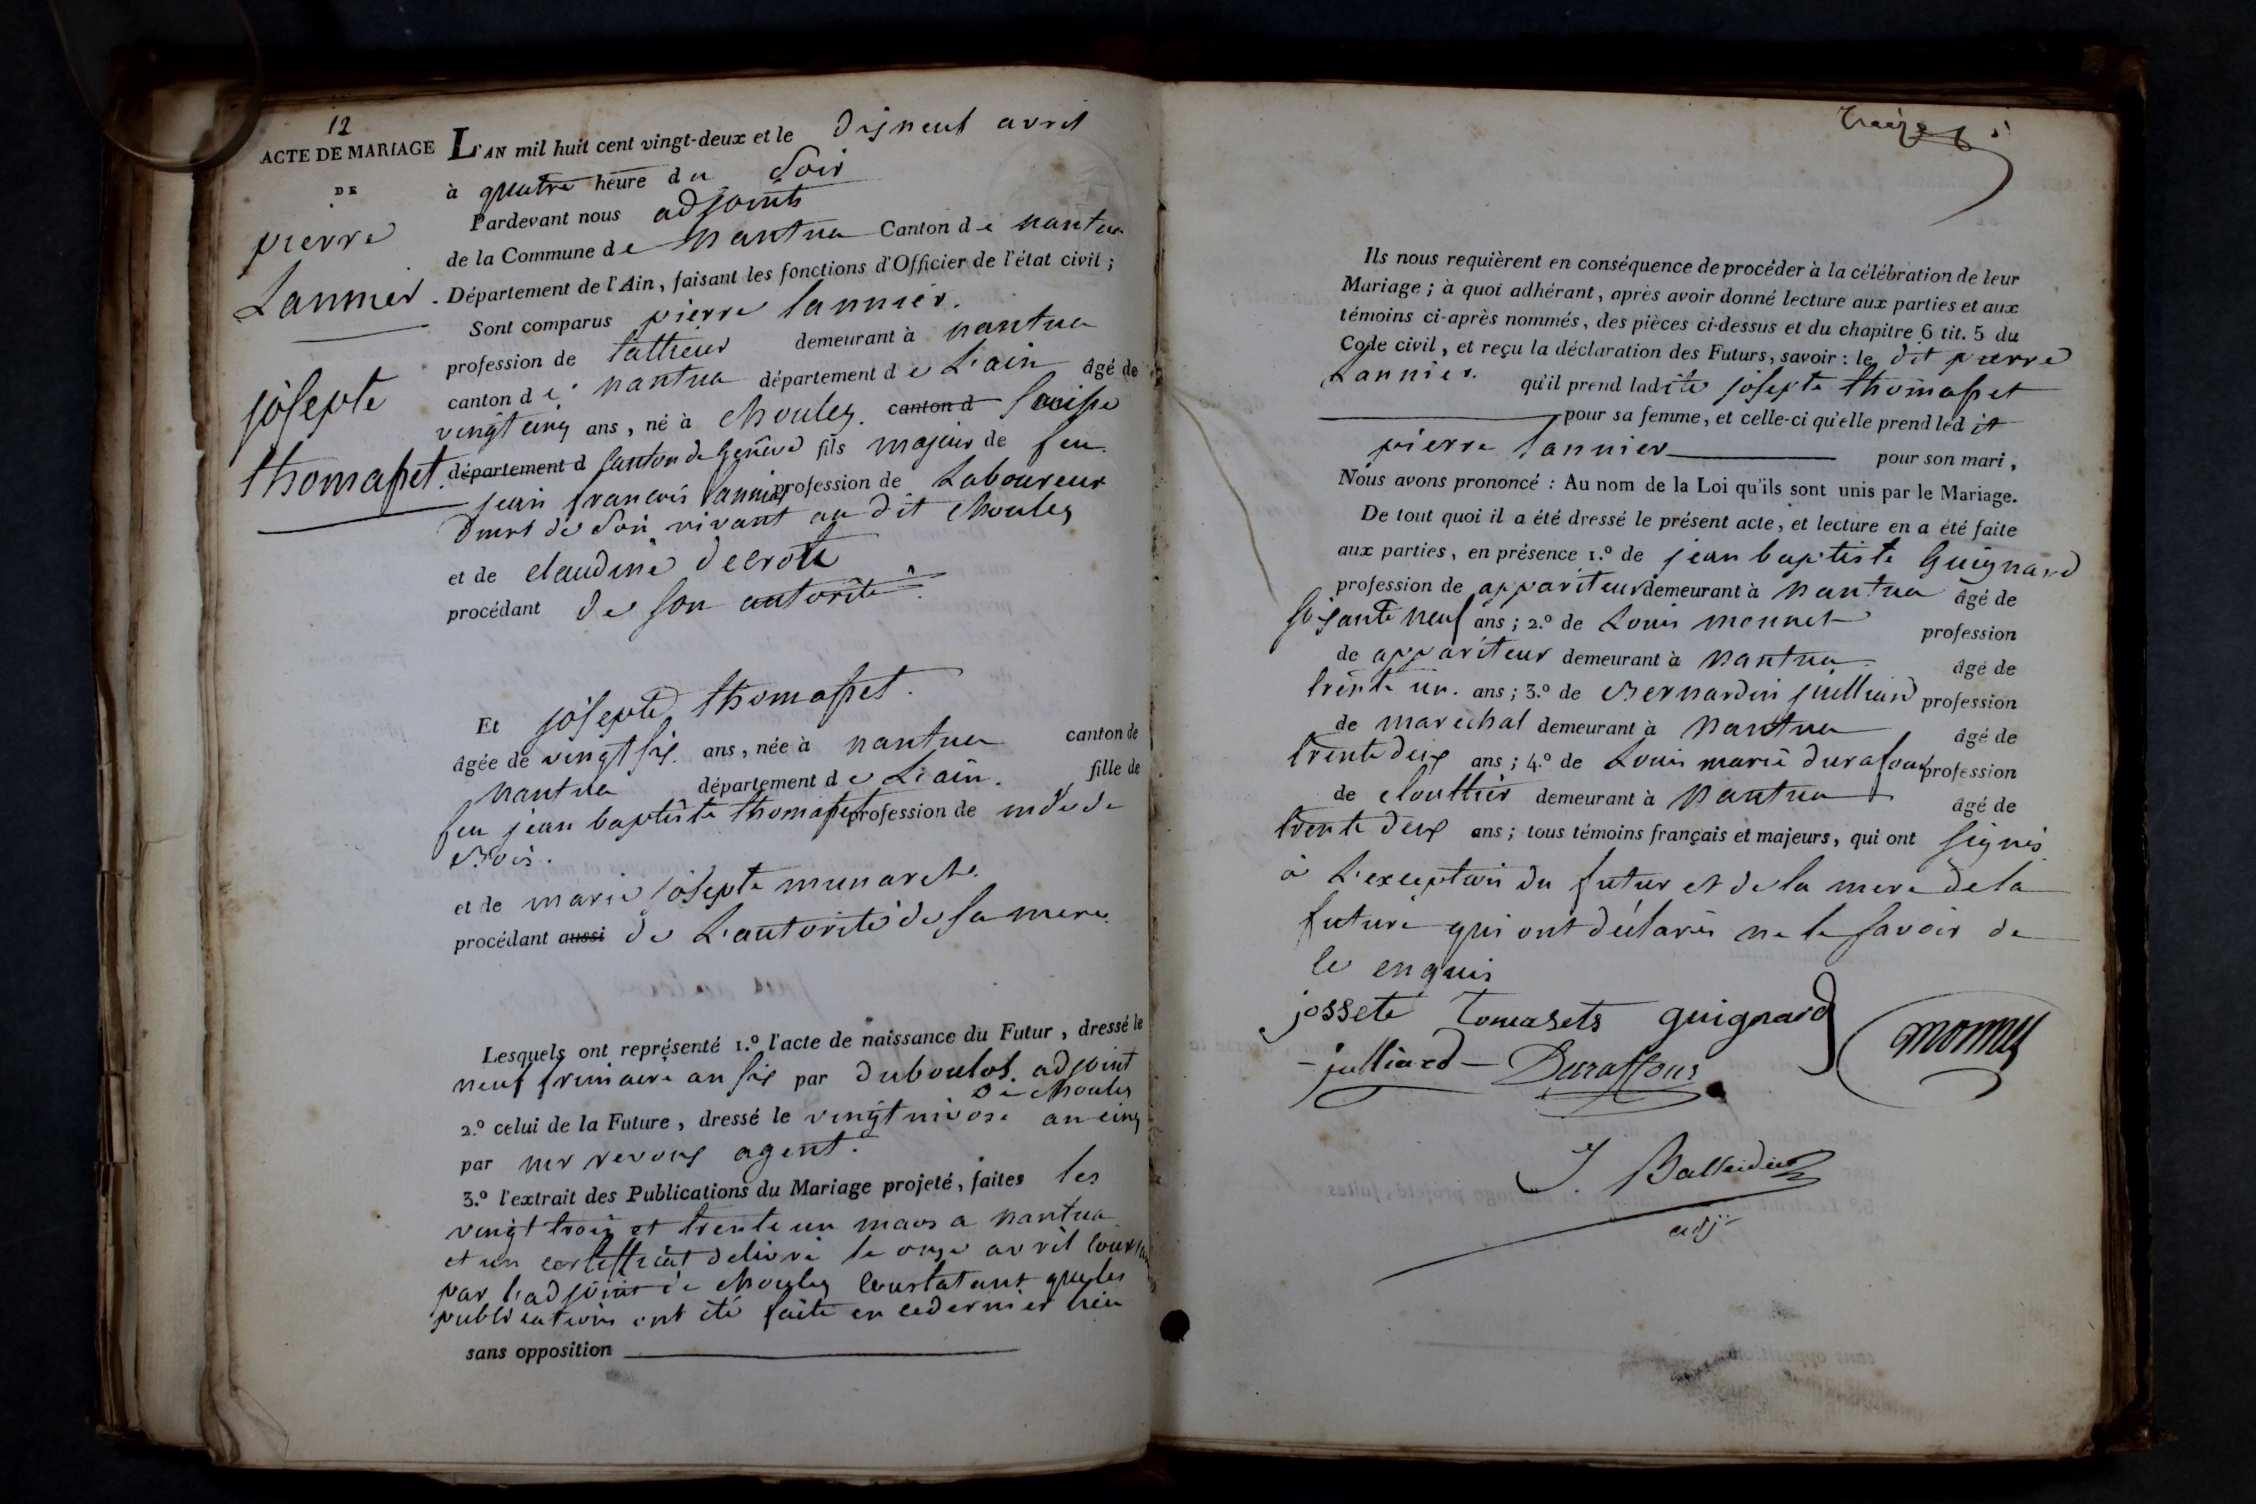 12
ACTE DE MARIAGE
DE
pierre
Lannier
josepte
thomasset
L'AN mil huit cent vingt-deux et le disneuf avril
à quatre heure du Soir
Pardevant nous adjoints
de la Commune de Nantua Canton de nantua
Département de l'Ain, faisant les fonctions d'Officier de l'état civil ;
Sont comparus pierre lannier.
profession de demeurant à nantua
canton de nantua département de L'ain âgé de
vingt cinq ans, né à Chouley. canton d Suisse
département d Canton de Genève fils majeur de feu
jean francois Lannier profession de Laboureur
de Son vivant au dit Chouley
et de claudine decrote
procédant de son autorité.
Et josepte thomasset.
âgée de vingt six ans, née à nantua canton de
nantua département de L'ain. fille de
feu jean baptiste thomasset profession de md de
Bois.
et de marie josepte munaret
procédant aussi de L'autorité de sa mere
Lesquels ont représenté 1.º l'acte de naissance du Futur, dressé le
neuf frimaire an six par duboulot adjoint
de Chouley
2.º celui de la Future, dressé le vingt nivose an cinq
par mr revoux agent.
3.º l'extrait des Publications du Mariage projeté, faites les
vingt trois et trente un mars a nantua
et un certifficat delivré le onze avril courant
par l'adjoint de Chouley constatant que les
publications ont été faite en ce dernier lieu
sans opposition
treize
Ils nous requièrent en conséquence de procéder à la célébration de leur
Mariage ; à quoi adhérant, après avoir donné lecture aux parties et aux
témoins ci-après nommés, des pièces ci-dessus et du chapitre 6 tit. 5 du
Code civil, et reçu la déclaration des Futurs, savoir : le dit pierre
Lannier. qu'il prend ladite josepte thomasset
pour sa femme, et celle-ci qu'elle prend ledit
pierre Lannier pour son mari,
Nous avons prononcé : Au nom de la Loi qu'ils sont unis par le Mariage.
De tout quoi il a été dressé le présent acte, et lecture en a été faite
aux parties, en présence 1.º de jean baptiste Guignard
profession de appariteur demeurant à nantua âgé de
soisante neuf ans ; 2.º de Louis monnet profession
de appariteur demeurant à nantua âgé de
trente un. ans ; 3.º de Bernardin juilliard profession
de marechal demeurant à nantua âgé de
trente deux ans ; 4.º de Louis marie durafour profession
de clouttier demeurant à nantua âgé de
trente deux ans ; tous témoins français et majeurs, qui ont signés
à L'exception du futur et de la mere de la
future qui ont déclarés ne le savoir de
ce enquis
jossete tomasets guignard
julliard Duraffour monnet
adj.